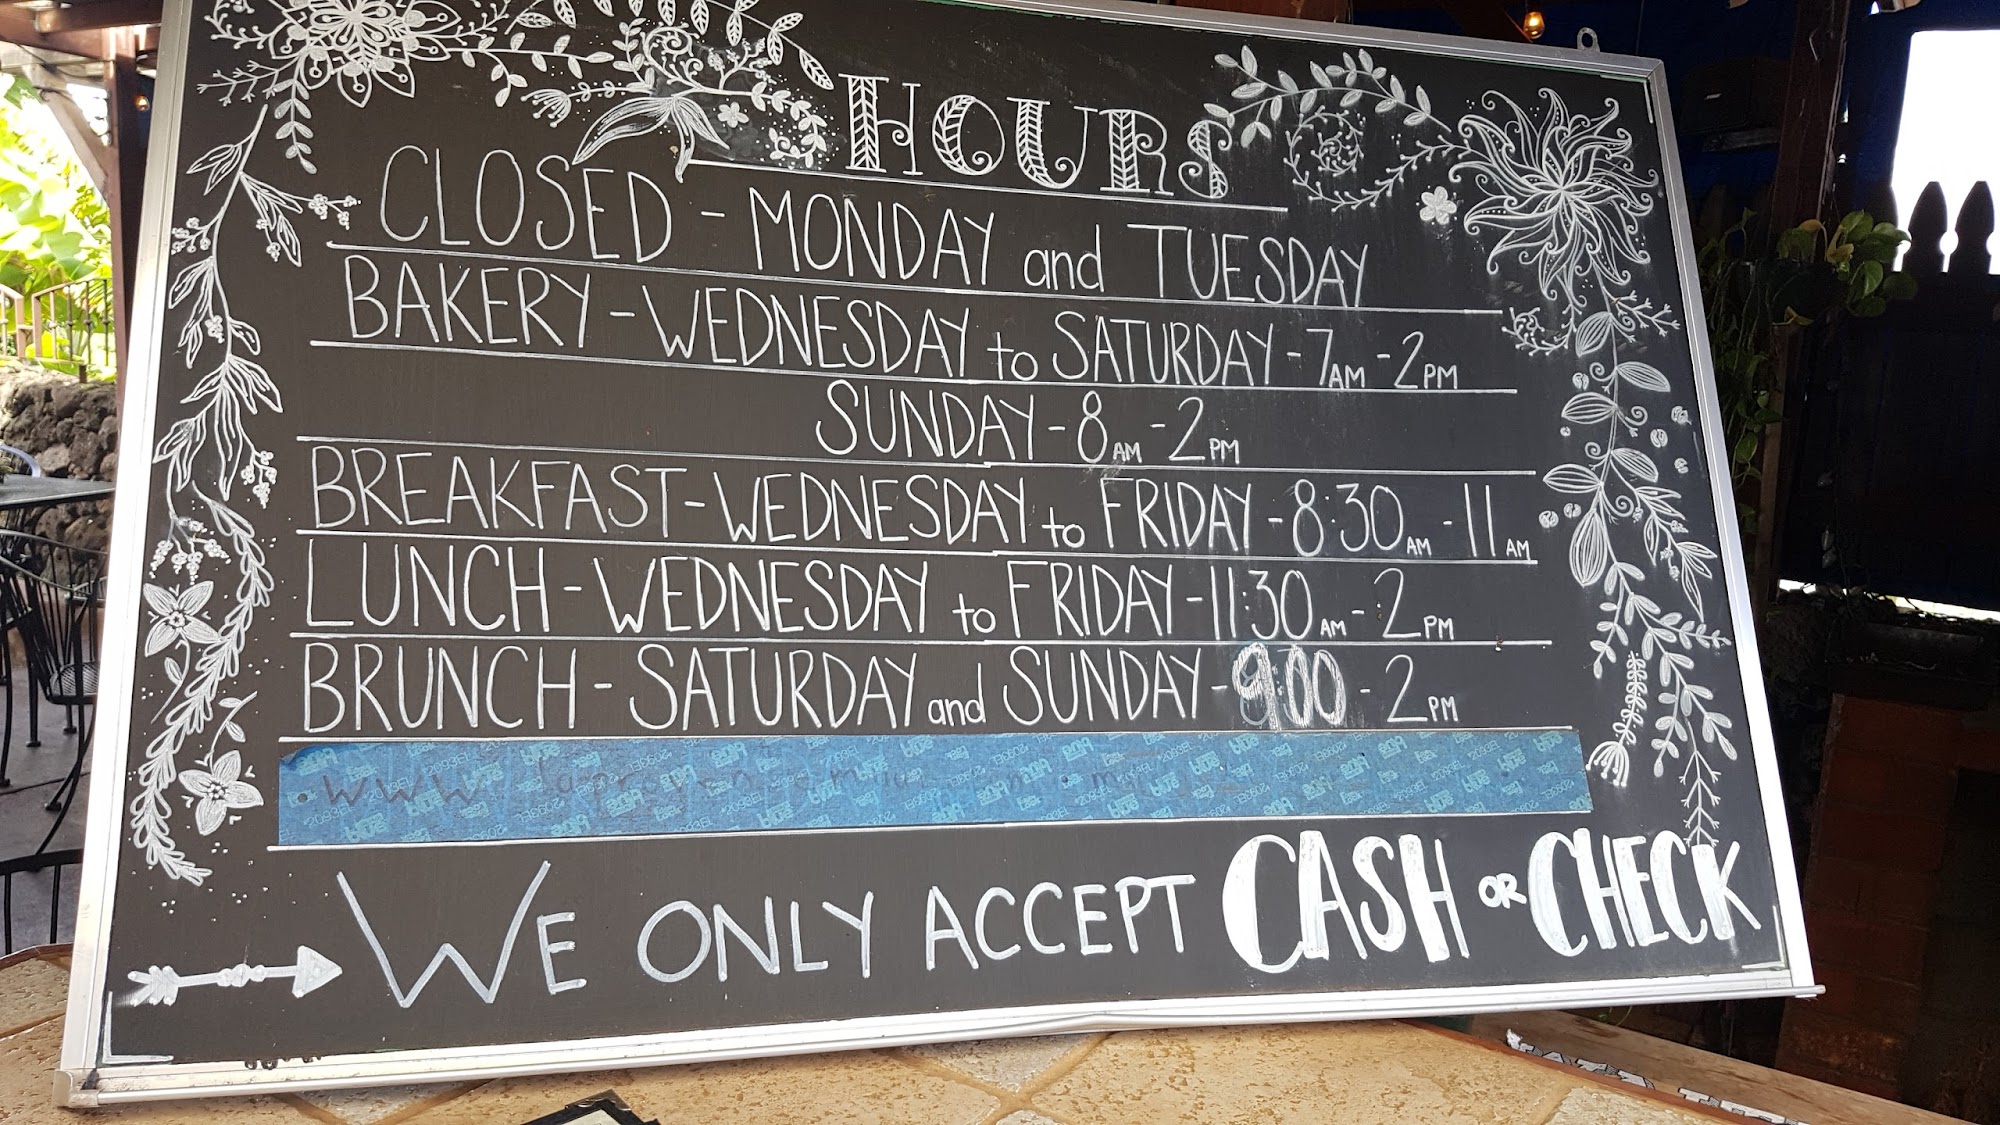 HOURS
CLOSED - MONDAY and TUESDAY
BAKERY - WEDNESDAY to SATURDAY - 7AM - 2PM
SUNDAY - 8AM - 2PM
BREAKFAST - WEDNESDAY to FRIDAY - 8:30AM - 11AM
LUNCH - WEDNESDAY to FRIDAY - 11:30AM - 2PM
BRUNCH - SATURDAY and SUNDAY - 9:00 - 2PM
WE ONLY ACCEPT CASH OR CHECK